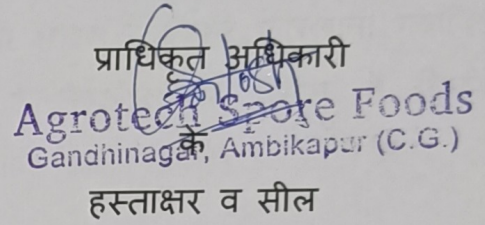 प्राधिकृत अधिकारी
Agrotech Spore Foods
के
Gandhinagar, Ambikapur (C.G.)
हस्ताक्षर व सील